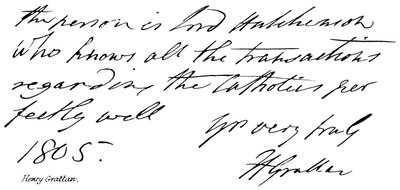 the person is Lord Hutchinson
who knows all the transactions
regarding the Catholics per
fectly well
yrs very truly
1805.
H Grattan
Henry Grattan.